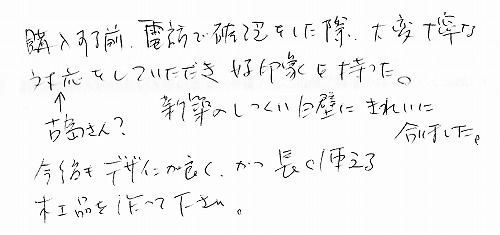 購入する前、電話で確認をした際、大変丁寧な
対応をしていただき好印象を持った。
↑
吉島さん?
新築のしっくい白壁にきれいに
合いました。
今後もデザインが良く、かつ長く使える
木工品を作って下さい。